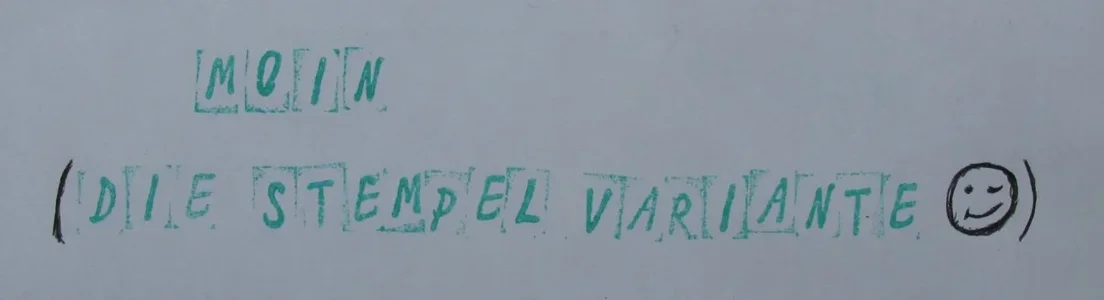 MOIN
(DIE STEMPEL VARIANTE 😉)